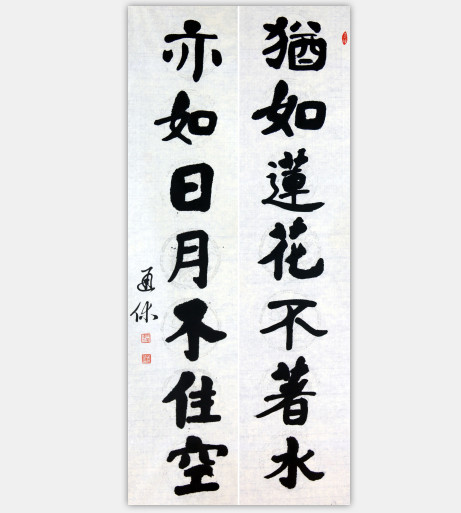 猶如蓮花不著水
亦如日月不住空
通休